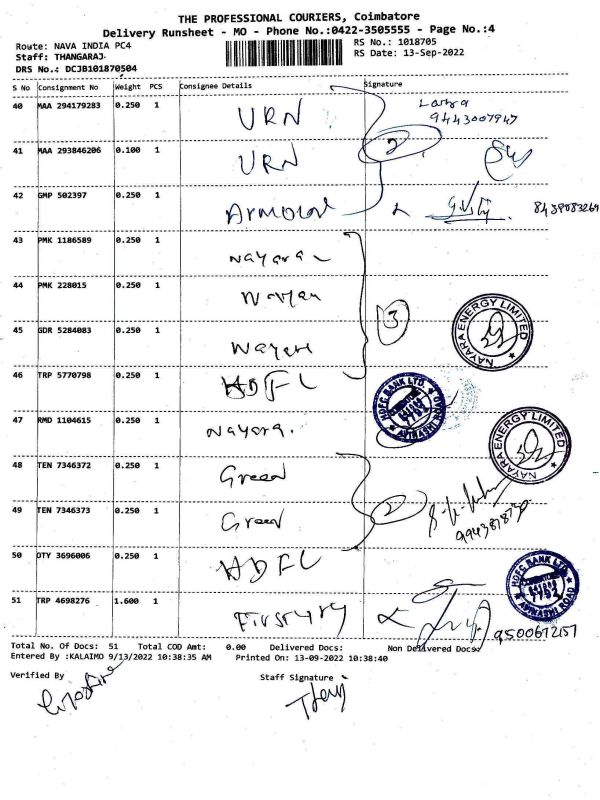 THE PROFESSIONAL COURIERS, Coimbatore
Delivery Runsheet - MO - Phone No.:0422-3505555 - Page No.:4
Route: NAVA INDIA PC4 RS No.: 1018705
Staff: THANGARAJ RS Date: 13-Sep-2022
DRS No.: DCJB101870504
S No Consignment No Weight PCS Consignee Details Signature
40 MAA 294179283 0.250 1 URN
9443007947
41 MAA 293846206 0.100 1 URN 2
42 GMP 502397 0.250 1
43 PMK 1186589 0.250 1 Nayara
44 PMK 228015 0.250 1
45 GDR 5284083 0.250 1 Nayara 3 NAYARA ENERGY LIMITED
46 TRP 5770798 0.250 1 HDFC HDFC BANK LTD. AVINASHI ROAD
47 RMD 1104615 0.250 1 Nayara. NAYARA ENERGY LIMITED
48 TEN 7346372 0.250 1 Green
49 TEN 7346373 0.250 1 Green 2
50 OTY 3696006 0.250 1 HDFC HDFC BANK LTD. AVINASHI ROAD
51 TRP 4698276 1.600 1
9500672157
Total No. Of Docs: 51 Total COD Amt: 0.00 Delivered Docs: Non Delivered Docs:
Entered By :KALAIMO 9/13/2022 10:38:35 AM Printed On: 13-09-2022 10:38:40
Verified By Staff Signature